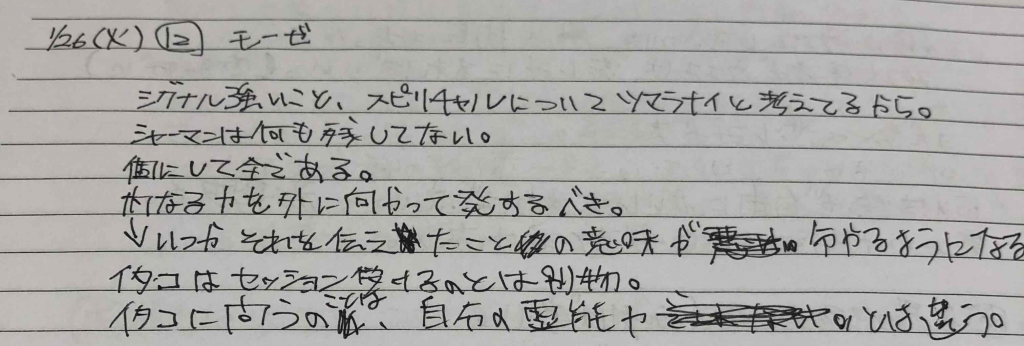 1/26(火) 12 モーゼ
シグナル強いこと、スピリチャルについてツマラナイと考えてるから。
シャーマンは何も残してない。
個にして全である。
内なる力を外に向かって発するべき。
↓いつかそれを伝えたことの意味が分かるようになる
イタコはセッションするのとは別物。
イタコに向うのは、自分の霊能やのとは違う。